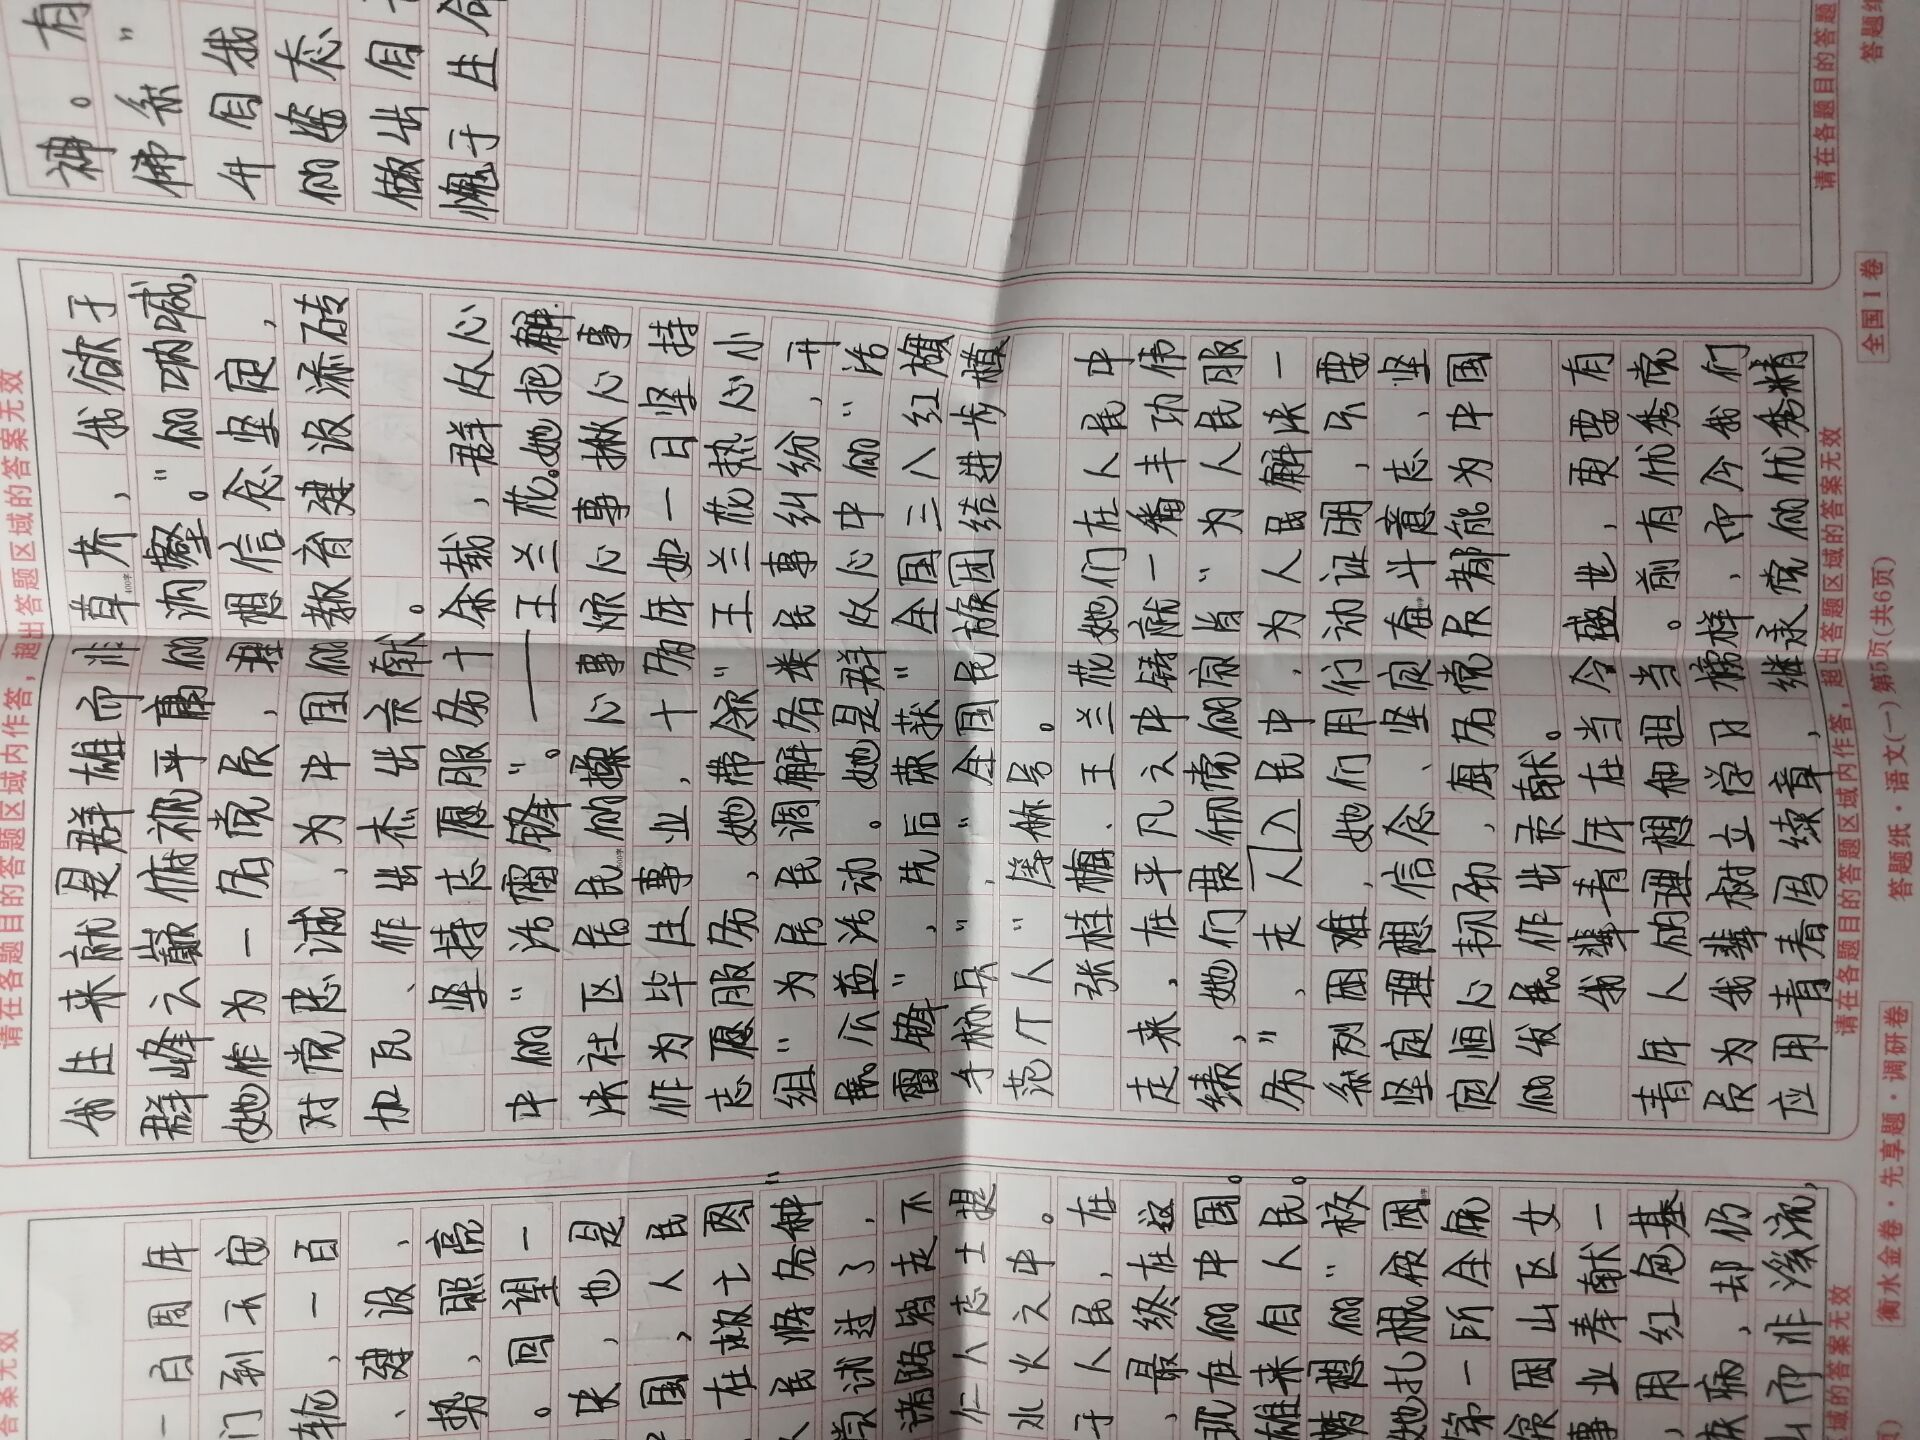 答案无效
一百周年
门到天安
轮，一百
、建设、
势，照亮
。回望一
块，也是
国，人民
在救亡图
人民将各种
尝试过了，
诸路皆走不
仁人志士提
水火之中。
于人民，在
，最终在这
现在的中国。
雄来自人民。
精想的“校
她扎根贫困
第一所全免
贫困山区女
事业奉献一
，用红色基
疾病，却仍
山而非溪流，
域的答案无效
请在各题目的答题区域内作答，超出答题区域的答案无效
我生来就是群雄而非草芥，我欲于
群峰之巅俯视平庸的沟壑。”的呐喊，
她作为一名党员，理想信念坚定，
对党忠诚，为中国的教育建设添砖
加瓦、作出杰出贡献。
坚持志愿服务十余载，群众心
中的“活雷锋”。——王兰花。她把解
决社区居民的操心事烦心事揪心事
作为毕生事业，十多年如一日坚持
志愿服务，她带领“王兰花热心小
组”为居民调解各类民事纠纷，开
展公益活动。她是群众心中的“活
雷锋”，先后荣获“全国三八红旗
手标兵”，“全国民族团结进步模
范个人”等称号。
张桂梅、王兰花她们在人民中
走来，在平凡之中铸就一番丰功伟
绩，她们贯彻党的宗旨“为人民服
务”，走入人民中，为人民解决一
系列困难，她们用行动证明，只要
坚定理想信念、坚定奋斗意志、坚
定恒心韧劲，每名党员都能为中国
的发展作出贡献。
我辈青年在当今盛世，更要有
青年人的理想和担当。前有优秀党
员为我辈树立学习榜样，而今我们
应用青春为续章，继承党的优秀精
请在各题目的答题区域内作答，超出答题区域的答案无效
衡水金卷·先享题·调研卷 答题纸·语文(一) 第5页(共6页) 全国Ⅰ卷
神。有
佛系”
午自我
的姿态
做出自
愧于生命
请在各题目的答题
答题纸